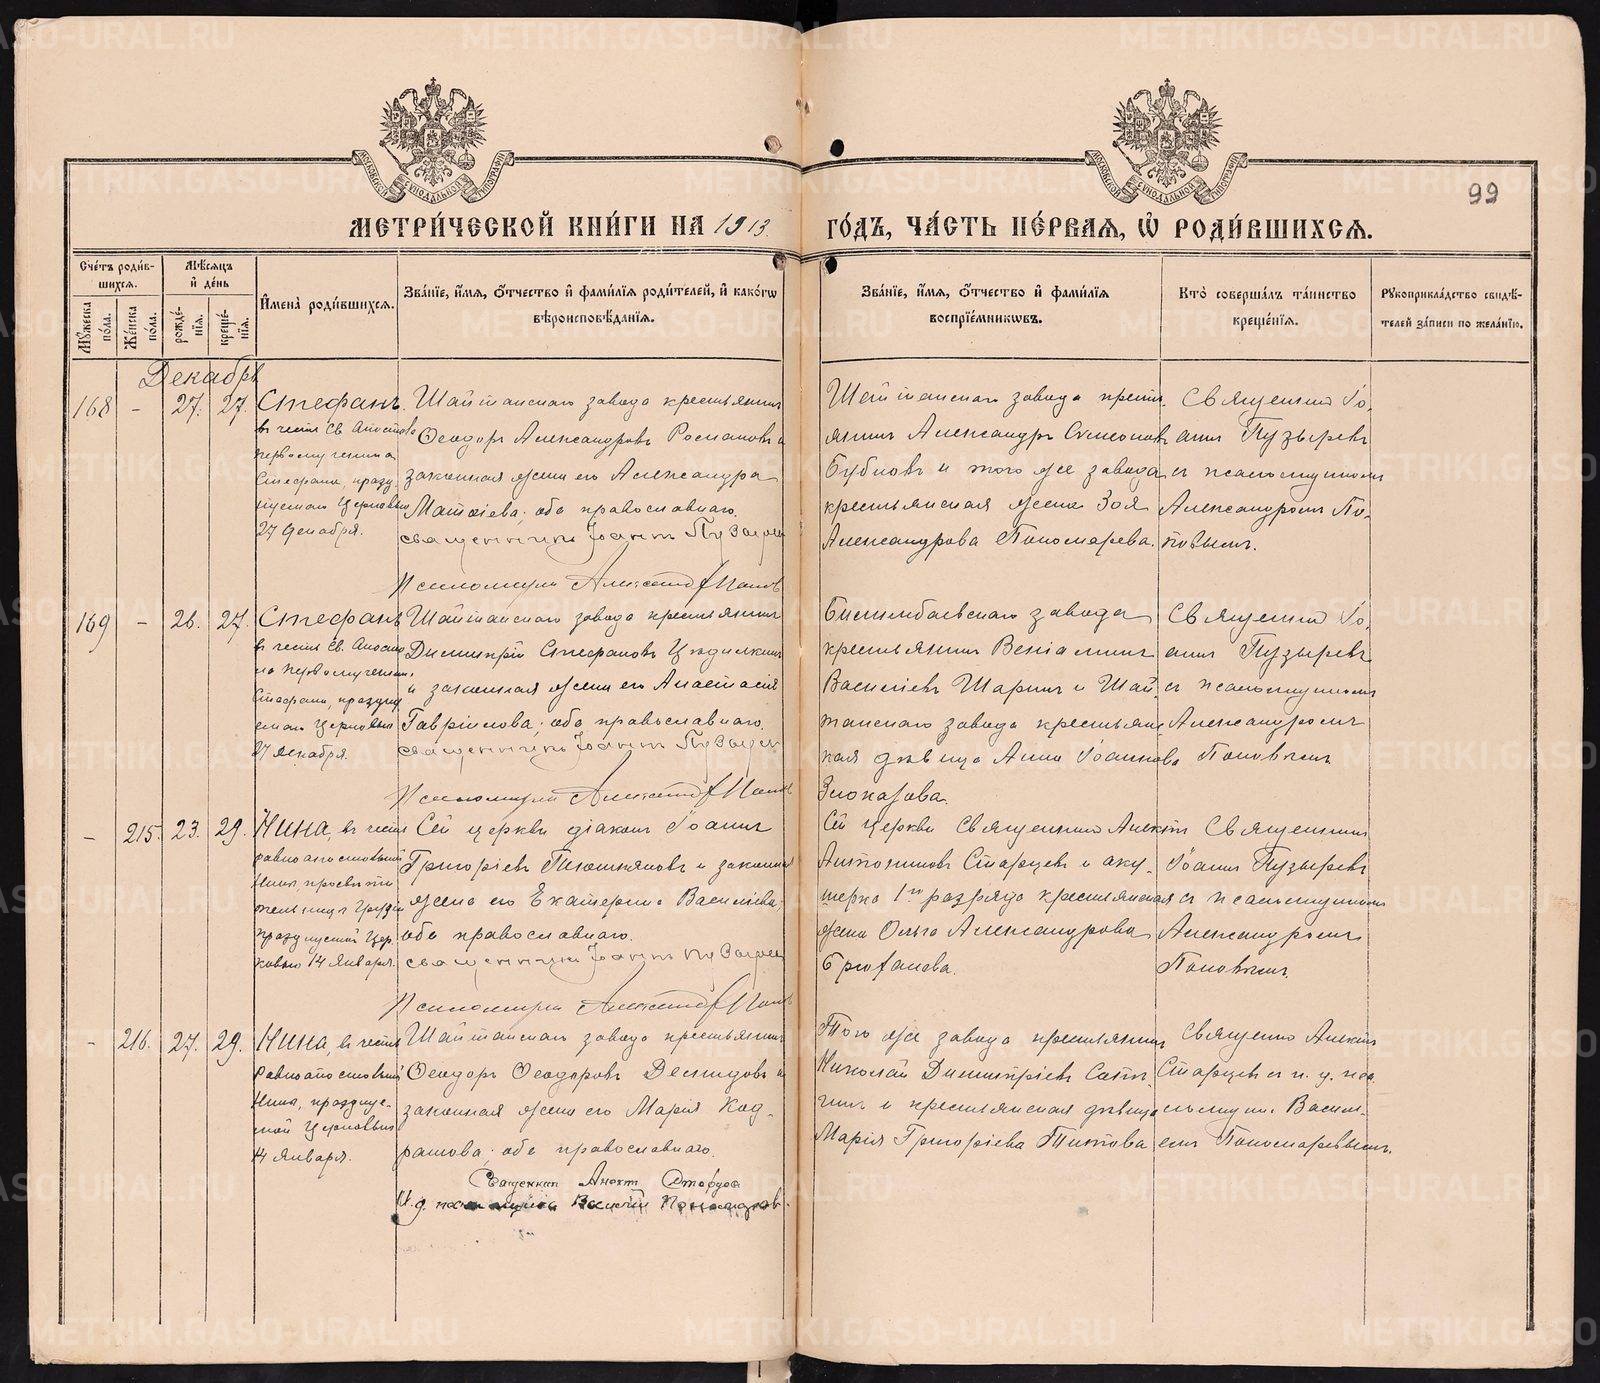 МЕТРИ́ЧЕСКОЙ КНИ́ГИ НА 1913
ГО́ДЪ, ЧА́СТЬ ПЕ́РВАѦ, Ѽ РОДИ́ВШИХСѦ.
99
Сче́тъ роди́в-
шихсѧ.
Мѣ́сѧцъ
и҆ де́нь
И҆мена̀ роди́вшихсѧ.
Зва́нїе, и҆́мѧ, ѻ҆́тчество и҆ фами́лїѧ роди́телей, и҆ како́гѡ
вѣроисповѣ́данїѧ.
Зва́нїе, и҆́мѧ, ѻ҆́тчество и҆ фами́лїѧ
воспрїе́мникѡвъ.
Кто̀ соверша́лъ та́инство
креще́нїѧ.
Рꙋкоприкла́дство свидѣ́-
телей за́писи по жела́нїю.
Мꙋ́жеска
по́ла.
Же́нска
по́ла.
рожде́-
нїѧ.
креще́-
нїѧ.
Декабрь
168 - 27. 27.
Стефанъ.
въ честь Св. Апостола
первомученика
Стефана, празд.
27 декабря.
Шайтанскаго завода крестьянинъ
Ѳеодоръ Александровъ и
законная жена его Александра
обо православнаго.
священникъ Іоаннъ Пузырев
Псаломщикъ Александр Попов
Шайтанскаго завода крестья.
янинъ Александръ Симеоновъ
Бубновъ и того же завода
крестьянская жена Зоя
Александрова Пономарева.
Священникъ Іо.
аннъ Пузыревъ
съ псаломщикомъ
Александромъ По.
повымъ.
169 - 26. 27.
Стефанъ
въ честь Св. Апосто
ла первомученик.
Стефана, праздну
емаго Церковью
27 декабря.
Шайтанскаго завода крестьянинъ
Димитрій Стефановъ
и законная жена его Анастасія
Гавріилова; обо православнаго.
священникъ Іоаннъ Пузырев
Псаломщикъ Александр Попов
Билимбаевскаго завода
крестьянинъ Веніаминъ
Василіевъ Шаринъ и Шай
танскаго завода крестьянс
кая дѣвица Анна Іоаннова
Злоказова.
Священникъ Іо.
аннъ Пузыревъ
съ псаломщикомъ
Александромъ
Поповымъ
- 215. 23. 29.
Нина, въ честь
равноапостольной
Нины, просвѣти
тельницы Грузіи
празднуемой Цер.
ковью 14 Января.
Сей церкви діаконъ Іоаннъ
Григоріевъ и законная
жена его Екатерина Василіева,
обо православнаго.
священникъ Іоаннъ Пузырев
Псаломщикъ Александр Попов
Сей церкви Священникъ
Антониновъ Старцевъ и аку.
шерка 1го разряда крестьянская
жена Ольга Александрова
Священникъ
Іоаннъ Пузыревъ
съ псаломщикомъ
Александромъ
Поповымъ
- 216. 27. 29.
Нина, въ честь
Равноапостольной
Нины, праздуе-
мой Церковью
14 Января.
Шайтанскаго завода крестьянинъ
Ѳеодоръ Ѳеодоровъ Демидовъ и
законная жена его Марія Код.
ратова; обо православнаго.
Священник Старцов
И. д. псаломщика Василій Пономарев.
Того же завода крестьянинъ
Николай Димитріевъ
и крестьянская дѣвица
Марія Григоріева Титова
Священ.
Старцевъ съ и. д. пса
ломщик. Васил.
емъ Пономаревымъ.
METRIKI.GASO-URAL.RU